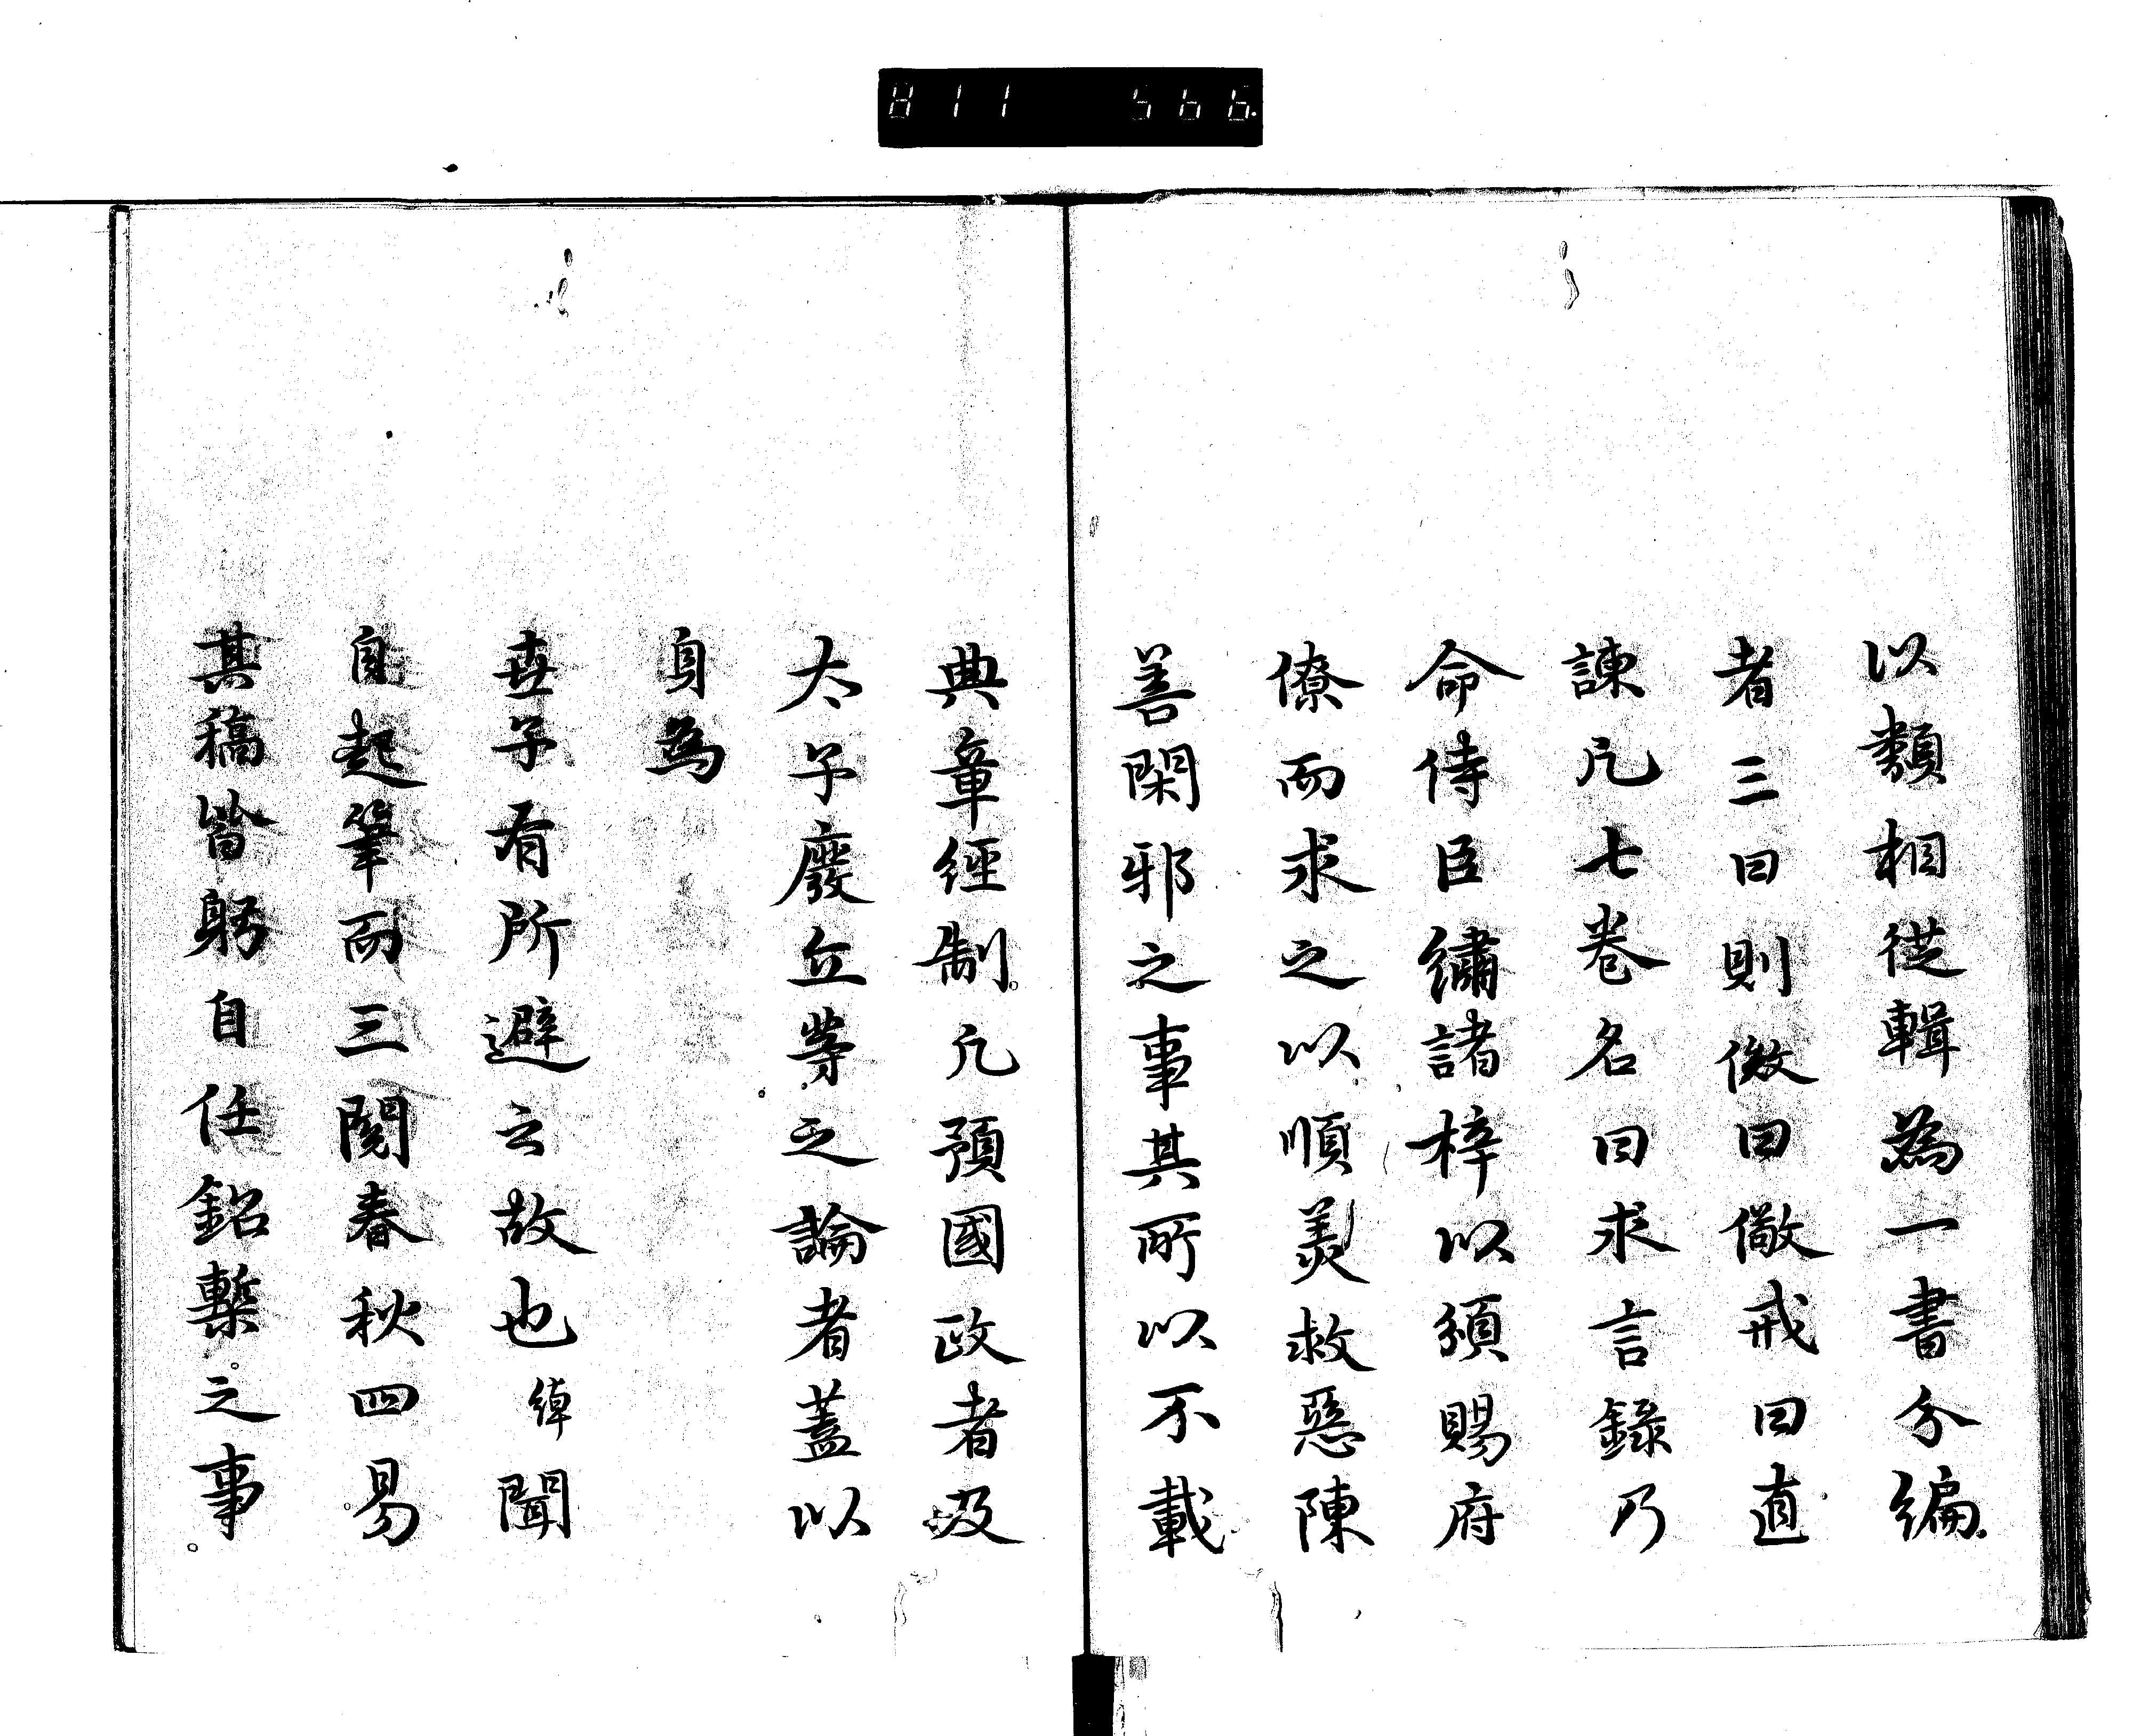 811 566.
以類相從輯為一書分編
者三曰則傚曰儆戒曰直
諫凡七卷名曰求言錄乃
命侍臣繡諸梓以頒賜府
僚而求之以順美救惡陳
善閑邪之事其所以不載
典章經制凡預國政者及
太子廢立等之論者蓋以
身為
世子有所避云故也綽聞
自起筆而三閱春秋四易
其稿皆躬自任鉛槧之事